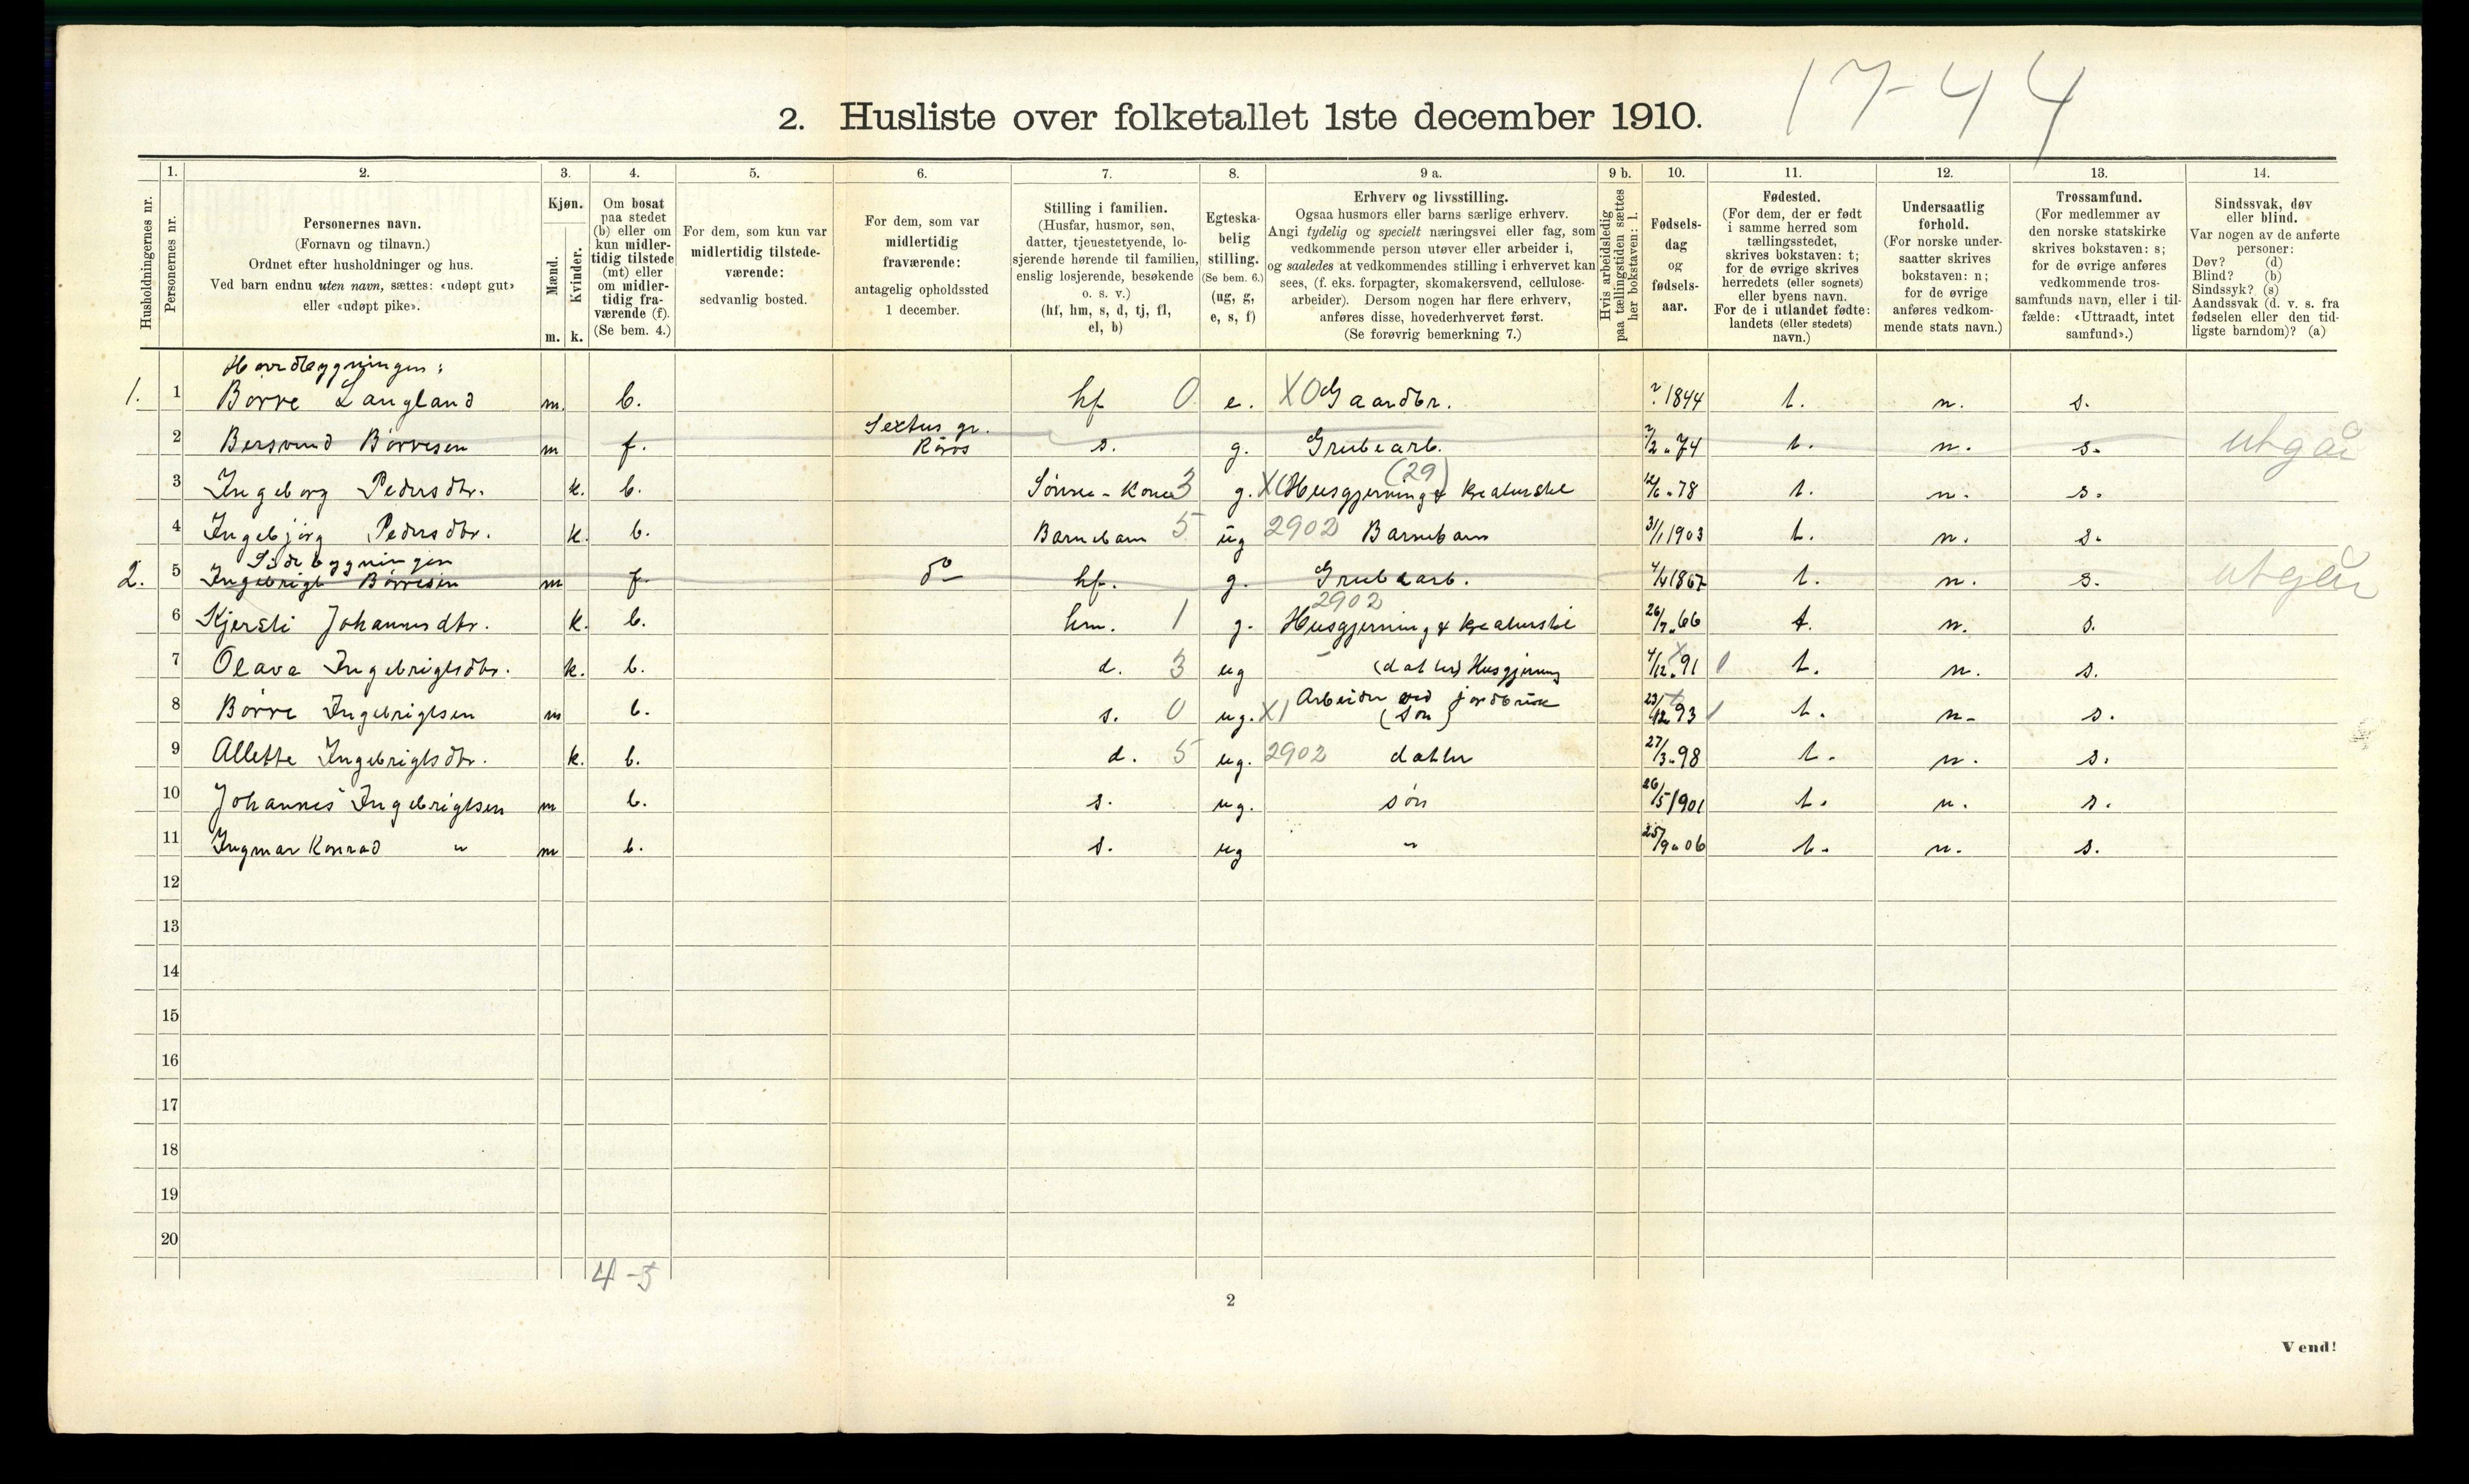 17-44
2. Husliste over folketallet 1ste december 1910.
Husholdningernes nr.
1. Personernes nr.
2. Personernes navn.
(Fornavn og tilnavn.)
Ordnet efter husholdninger og hus.
Ved barn endnu uten navn, sættes: «udøpt gut»
eller «udøpt pike».
3. Kjøn.
Mænd. Kvinder.
m. k.
4. Om bosat
paa stedet
(b) eller om
kun midler-
tidig tilstede
(mt) eller
om midler-
tidig fra-
værende (f).
(Se bem. 4.)
5. For dem, som kun var
midlertidig tilstede-
værende:
sedvanlig bosted.
6. For dem, som var
midlertidig
fraværende:
antagelig opholdssted
1 december.
7. Stilling i familien.
(Husfar, husmor, søn,
datter, tjenestetyende, lo-
sjerende hørende til familien,
enslig losjerende, besøkende
o. s. v.)
(hf, hm, s, d, tj, fl,
el, b)
8. Egteska-
belig
stilling.
(Se bem. 6.)
(ug, g,
e, s, f)
9 a. Erhverv og livsstilling.
Ogsaa husmors eller barns særlige erhverv.
Angi tydelig og specielt næringsvei eller fag, som
vedkommende person utøver eller arbeider i,
og saaledes at vedkommendes stilling i erhvervet kan
sees, (f. eks. forpagter, skomakersvend, cellulose-
arbeider). Dersom nogen har flere erhverv,
anføres disse, hovederhvervet først.
(Se forøvrig bemerkning 7.)
9 b. Hvis arbeidsledig
paa tællingstiden sættes
her bokstaven: l.
10. Fødsels-
dag
og
fødsels-
aar.
11. Fødested.
(For dem, der er født
i samme herred som
tællingsstedet,
skrives bokstaven: t;
for de øvrige skrives
herredets (eller sognets)
eller byens navn.
For de i utlandet fødte:
landets (eller stedets)
navn.)
12. Undersaatlig
forhold.
(For norske under-
saatter skrives
bokstaven: n;
for de øvrige
anføres vedkom-
mende stats navn.)
13. Trossamfund.
(For medlemmer av
den norske statskirke
skrives bokstaven: s;
for de øvrige anføres
vedkommende tros-
samfunds navn, eller i til-
fælde: «Uttraadt, intet
samfund».)
14. Sindssvak, døv
eller blind.
Var nogen av de anførte
personer:
Døv? (d)
Blind? (b)
Sindssyk? (s)
Aandssvak (d. v. s. fra
fødselen eller den tid-
ligste barndom)? (a)
Hovedbygningen:
1. 1 Börre Langland m. b. hf 0 e. X0 Gaardbr. ? 1844 t. n. s.
2 Bersvend Börresen m f. Sextus gr. Röros s. g. Grubearb. 2/2.74 t. n. s. utgår
3 Ingeborg Pedersdtr. k. b. Sönne-Kone 3 g. X Husgjerning & Kreaturstel (29) 12/6.78 t. n. s.
4 Ingebjörg Pedersdtr. k. b. Barnebarn 5 ug 2902 Barnebarn 31/1 1903 t. n. s.
Sidebygningen
2. 5 Ingebrigt Börresen m f do hf. g. Grubearb. 4/4 1867 t. n. s. utgår
6 Kjersti Johannesdtr. k. b. hm. 1 g. 2902 Husgjerning & Kreaturstel 26/7.66 t. n. s.
7 Olava Ingebrigtsdtr. k. b. d. 3 ug (datter) Husgjerning 4/12.91 t. n. s.
8 Börre Ingebrigtsen m b. s. 0 ug. X1 Arbeider ved jordbruk (sön) 23/12.93 t. n. s.
9 Allette Ingebrigtsdtr. k. b. d. 5 ug. 2902 datter 27/3.98 t. n. s.
10 Johannes Ingebrigtsen m b. s. ug. sön 26/5 1901 t. n. s.
11 Ingmar Konrad " m b. s. ug " 25/9.06 t. n. s.
12
13
14
15
16
17
18
19
20
4-5
2
Vend!